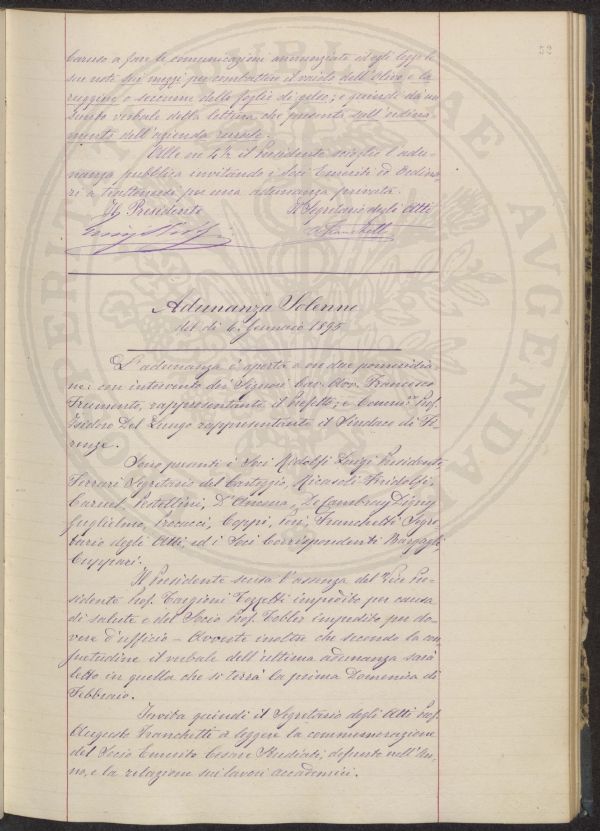 52
Caruso a fare le comunicazioni annunziate ed egli legge le
sue note sui mezzi per combattere il vaiolo dell'olivo, e la
ruggine o seccume delle foglie di gelso; e quindi dà un
sunto verbale della lettura che presenta sull'ordina-
mento dell'azienda rurale.
Alle ore 4 ½ il Presidente scioglie l'adu-
nanza pubblica invitando i Soci Emeriti ed Ordina-
ri a trattenersi per una adunanza privata.
Il Presidente Il Segretario degli Atti
Luigi Ridolfi
A Franchetti
Adunanza Solenne
del dì 6 Gennaio 1895
L'adunanza è aperta a ore due pomeridia-
ne: con intervento dei Signori Cav. Avv. Francesco
Frumento, rappresentante il Prefetto; e Comm.re Prof.
Isidoro Del Lungo rappresentante il Sindaco di Fi-
renze.
Sono presenti i Soci Ridolfi Luigi Presidente,
Ferrari Segretario del Carteggio, Ricasoli Firidolfi,
Caruel, Pestellini, D'Ancona, De Cambray Digny
Guglielmo, Procacci, Coppi, Franchetti Segre-
tario degli Atti, ed i Soci Corrispondenti Bargagli,
Cuppari.
Il Presidente scusa l'assenza del Vice Pre-
sidente Prof. Targioni Tozzetti impedito per causa
di salute e del Socio Prof. Tobler impedito per do-
vere d'ufficio – Avverte inoltre che secondo la con-
suetudine il verbale dell'ultima adunanza sarà
letto in quella che si terrà la prima Domenica di
Febbraio.
Invita quindi il Segretario degli Atti Prof.
Augusto Franchetti a leggere la commemorazione
del Socio Emerito Cesare Studiati, defunto nell'An-
no, e la relazione sui lavori accademici.